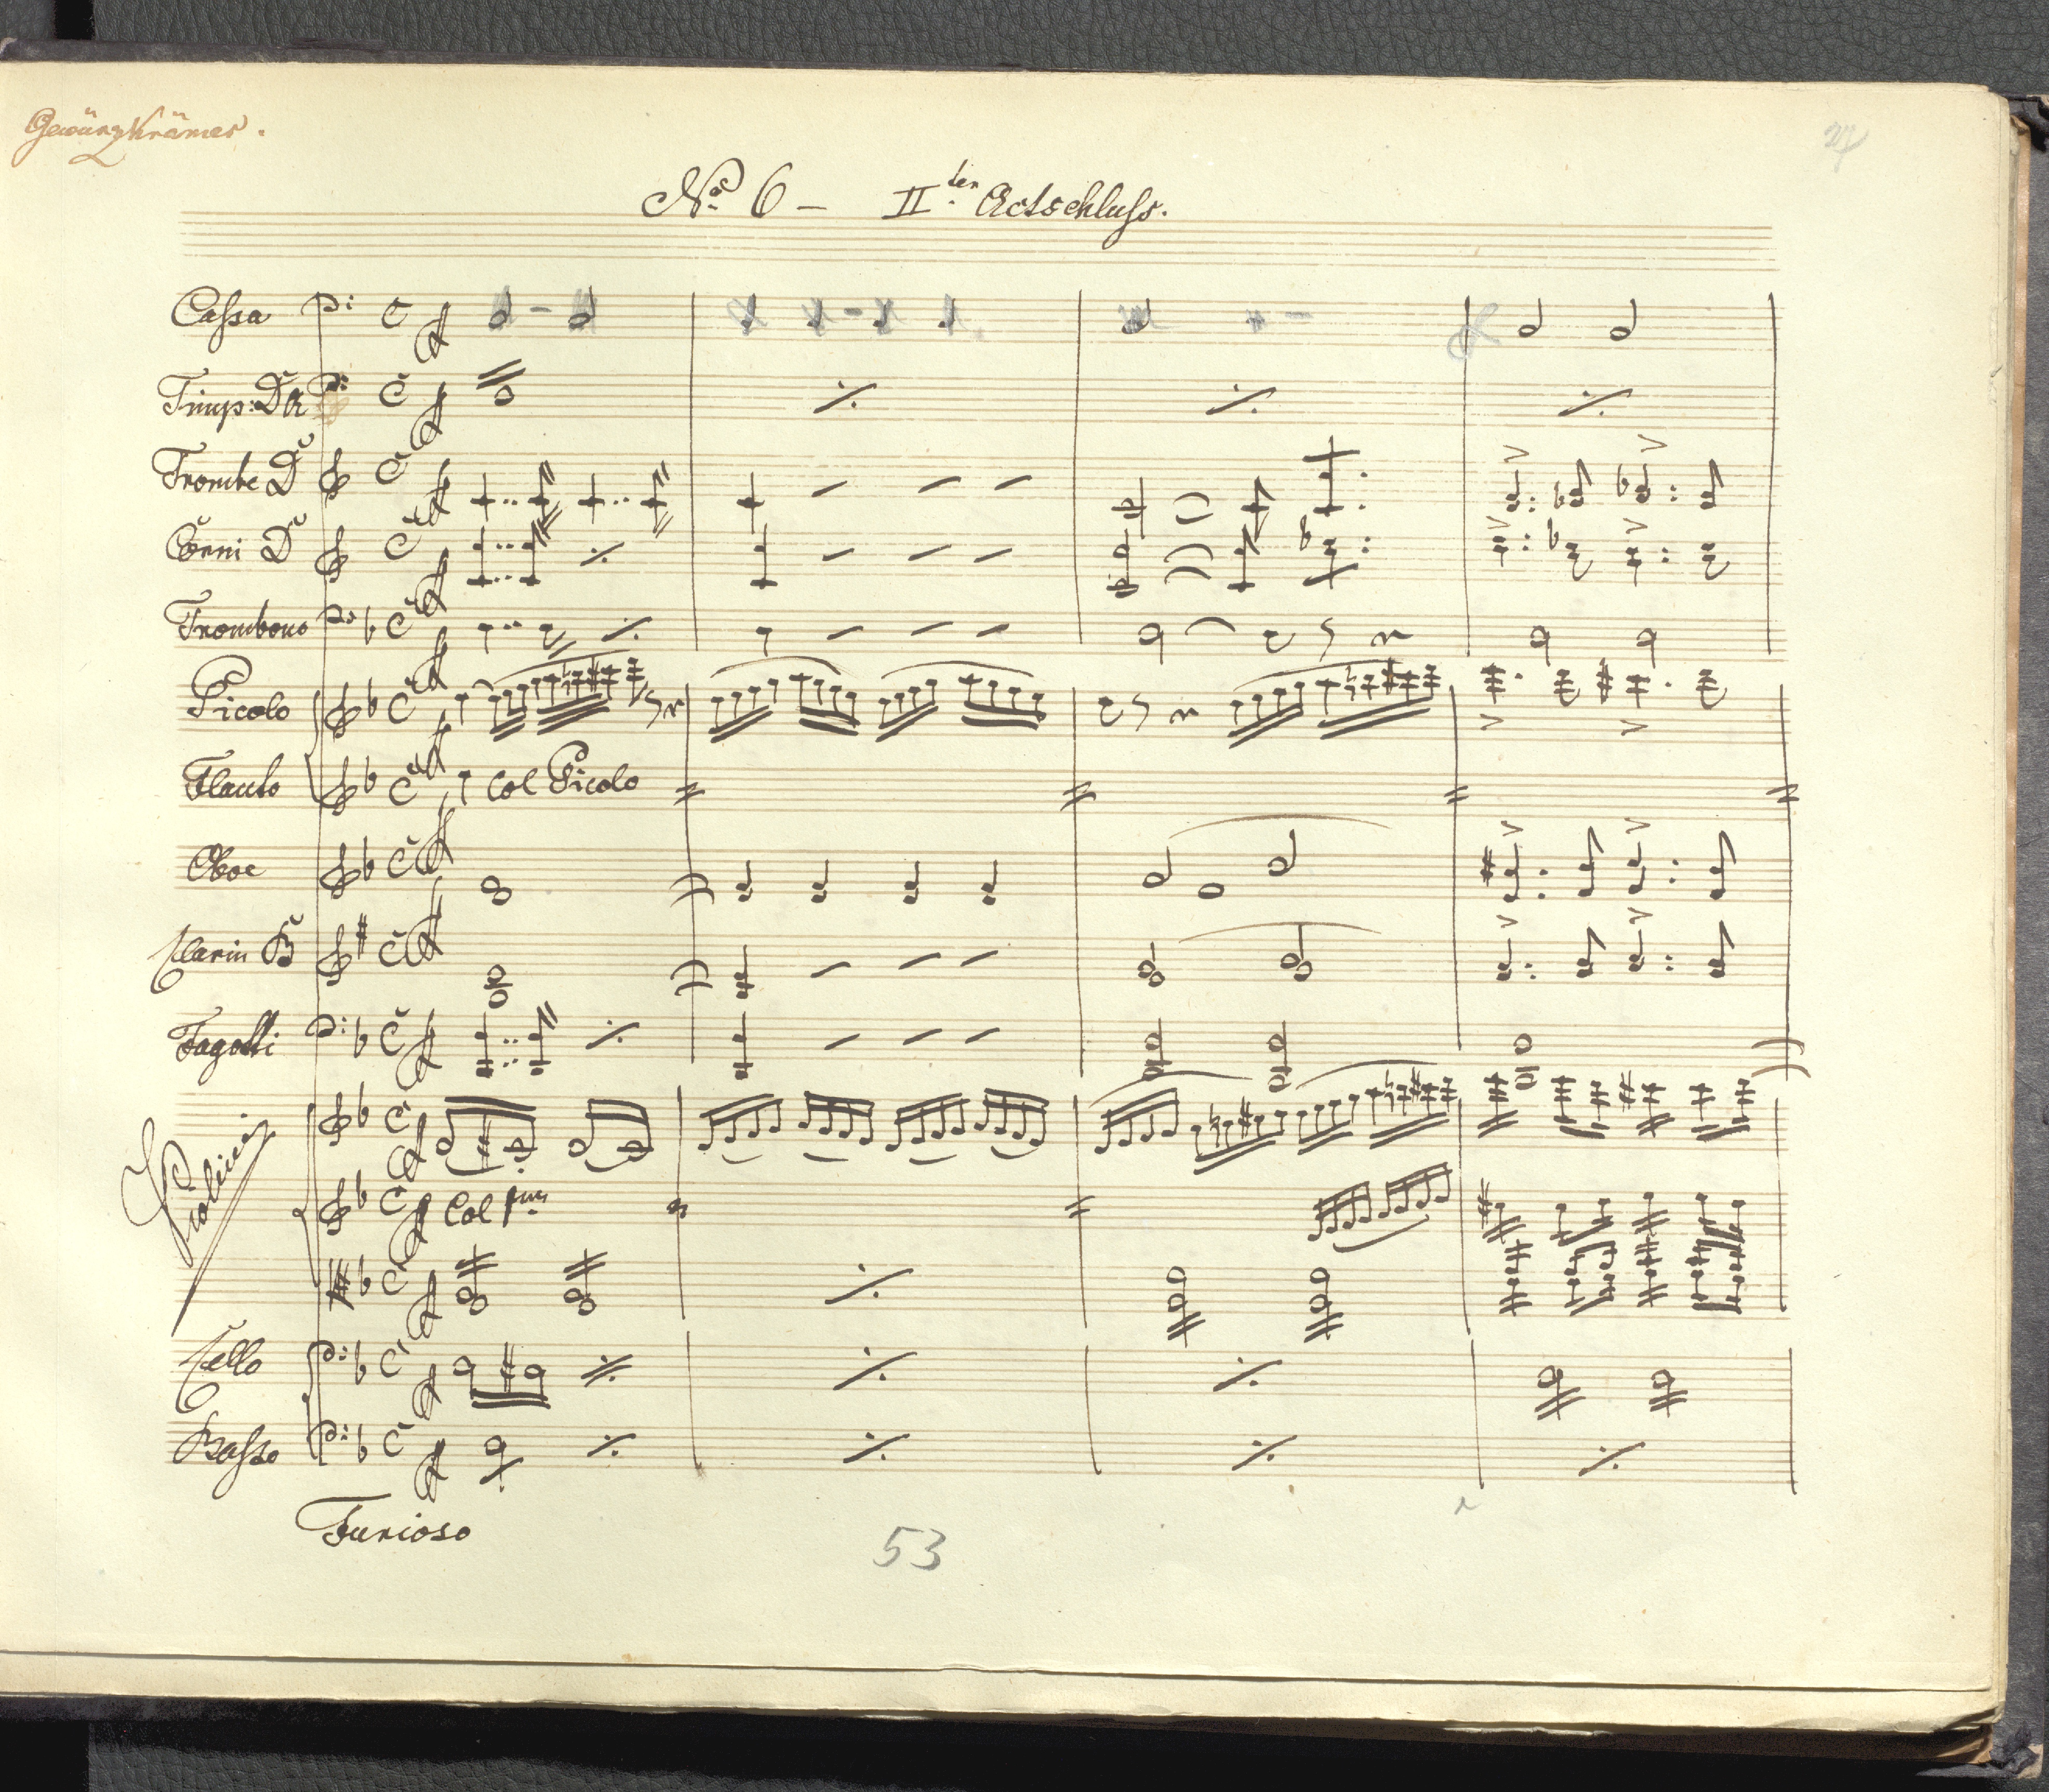 Gewürzkrämer.
No. 6 – II.ter Actschluss.
Cassa
Timp: D A
Trombe D
Corni D
Trombono
Picolo
Flauto Col Picolo
Oboe
Clarin B
Fagotti
Violini
Col Pmo
Cello
Basso
Furioso
53